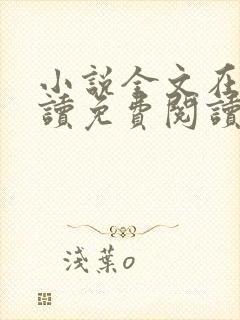 小說全文在
讀免費閱讀
淺葉o